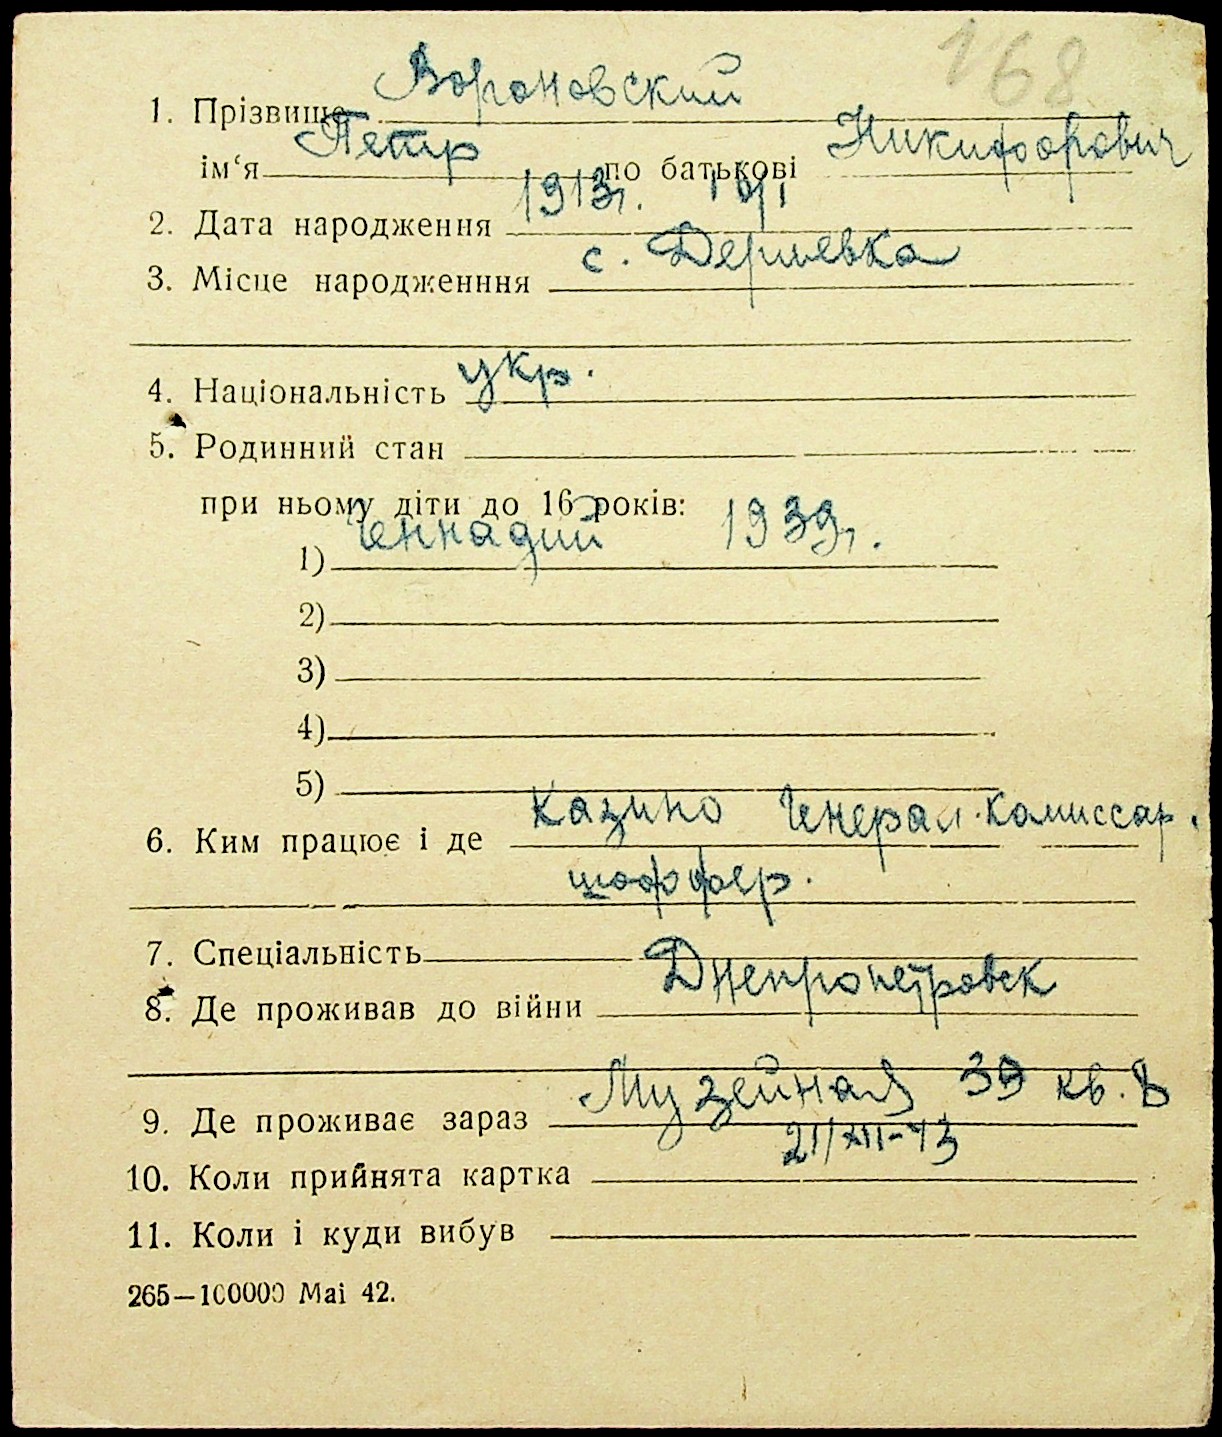 168
1. Прізвище Вороновский
ім‘я Петр по батькові Никифорович
2. Дата народження 1913г.
3. Місце народженння с. Дериевка
4. Національність укр.
5. Родинний стан
при ньому діти до 16 років:
1) Геннадий 1939г.
2)
3)
4)
5)
6. Ким працює і де Казино Генерал. Комиссар.
шоффер.
7. Спеціальність
8. Де проживав до війни Днепропетровск
9. Де проживає зараз Музейная 39 кв. 8
10. Коли прийнята картка 21/XII-43
11. Коли і куди вибув
265—100000 Mai 42.